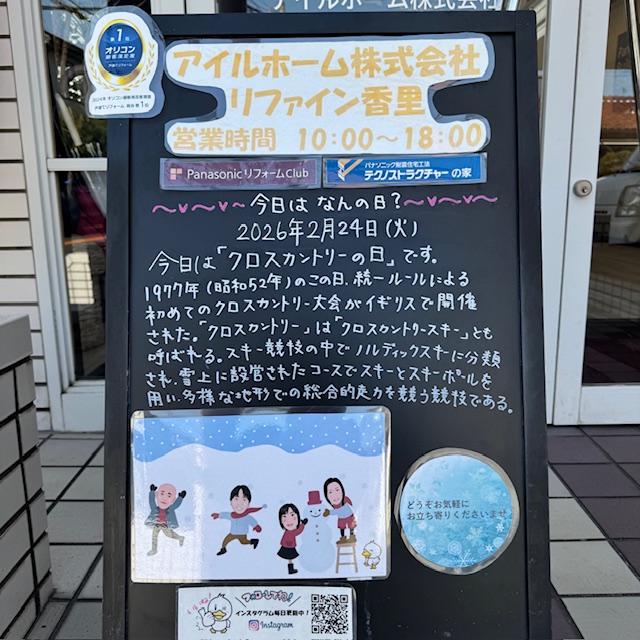 アイルホーム株式会社
第1位
オリコン
顧客満足度
戸建てリフォーム
アイルホーム株式会社
リファイン香里
営業時間 10:00〜18:00
Panasonic リフォーム Club
パナソニック耐震住宅工法
テクノストラクチャーの家
〜今日は なんの日?〜
2026年2月24日(火)
今日は「クロスカントリーの日」です。
1977年(昭和52年)のこの日、統一ルールによる
初めてのクロスカントリー大会がイギリスで開催
された。「クロスカントリー」は「クロスカントリースキー」とも
呼ばれる。スキー競技の中でノルディックスキーに分類
され、雪上に設営されたコースでスキーとスキーポールを
用い、多様な地形での総合的走力を競う競技である。
どうぞお気軽に
お立ち寄りくださいませ
フォローしてね!
インスタグラム毎日更新中!
Instagram